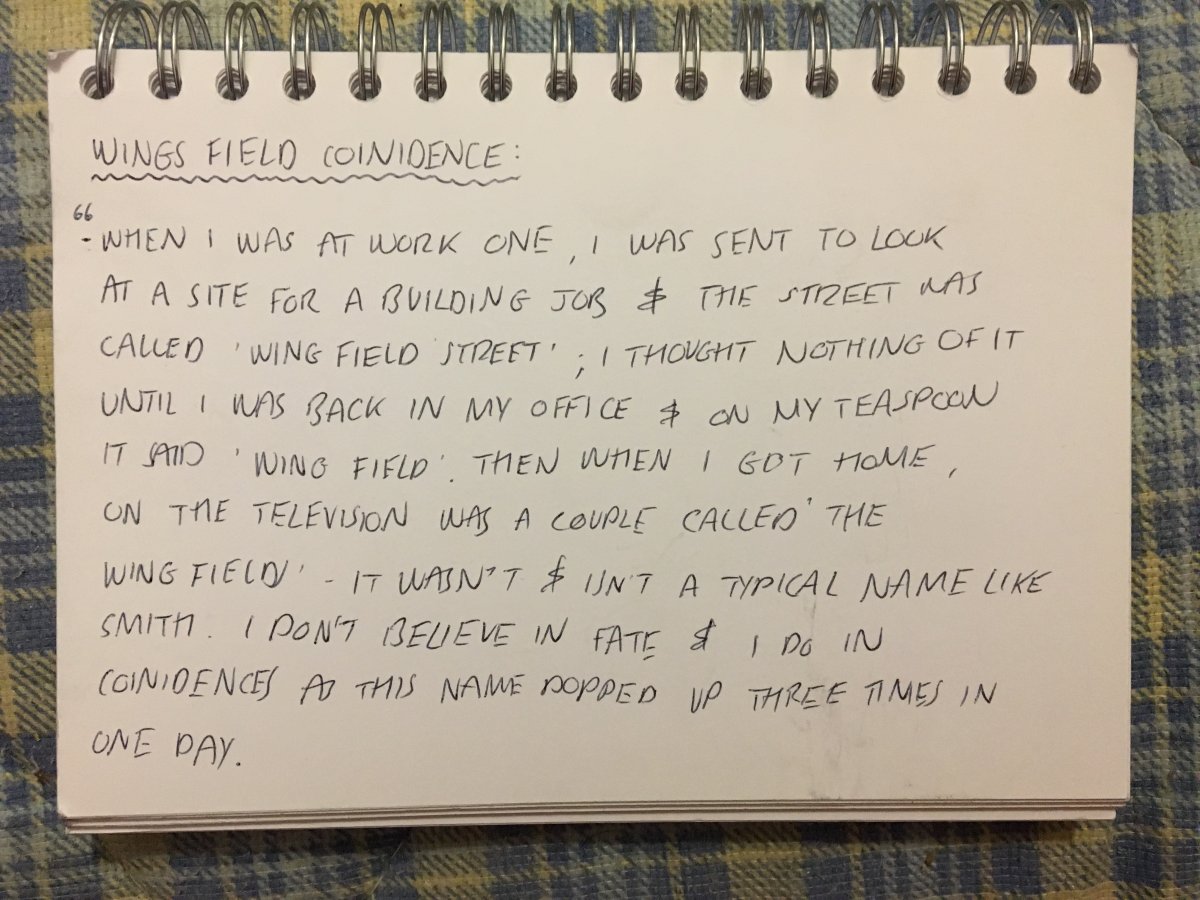 WINGS FIELD COINIDENCE:
66
- WHEN I WAS AT WORK ONE, I WAS SENT TO LOOK
AT A SITE FOR A BUILDING JOB & THE STREET WAS
CALLED 'WING FIELD STREET'; I THOUGHT NOTHING OF IT
UNTIL I WAS BACK IN MY OFFICE & ON MY TEASPOON
IT SAID 'WING FIELD'. THEN WHEN I GOT HOME,
ON THE TELEVISION WAS A COUPLE CALLED 'THE
WING FIELD' - IT WASN'T & ISN'T A TYPICAL NAME LIKE
SMITH. I DON'T BELIEVE IN FATE & I DO IN
COINIDENCES AS THIS NAME POPPED UP THREE TIMES IN
ONE DAY.